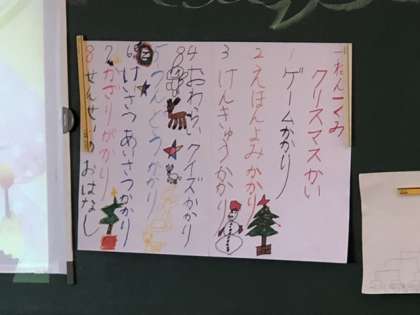 一ねん一くみ
クリスマスかい
1 ゲームかかり
2 えほんよみかかり
3 けんきゅうかかり
4 おわらいクイズかかり
5 うんどうかかり
6 けいさつあいさつかかり
7 かざりがかり
8 せんせいのおはなし